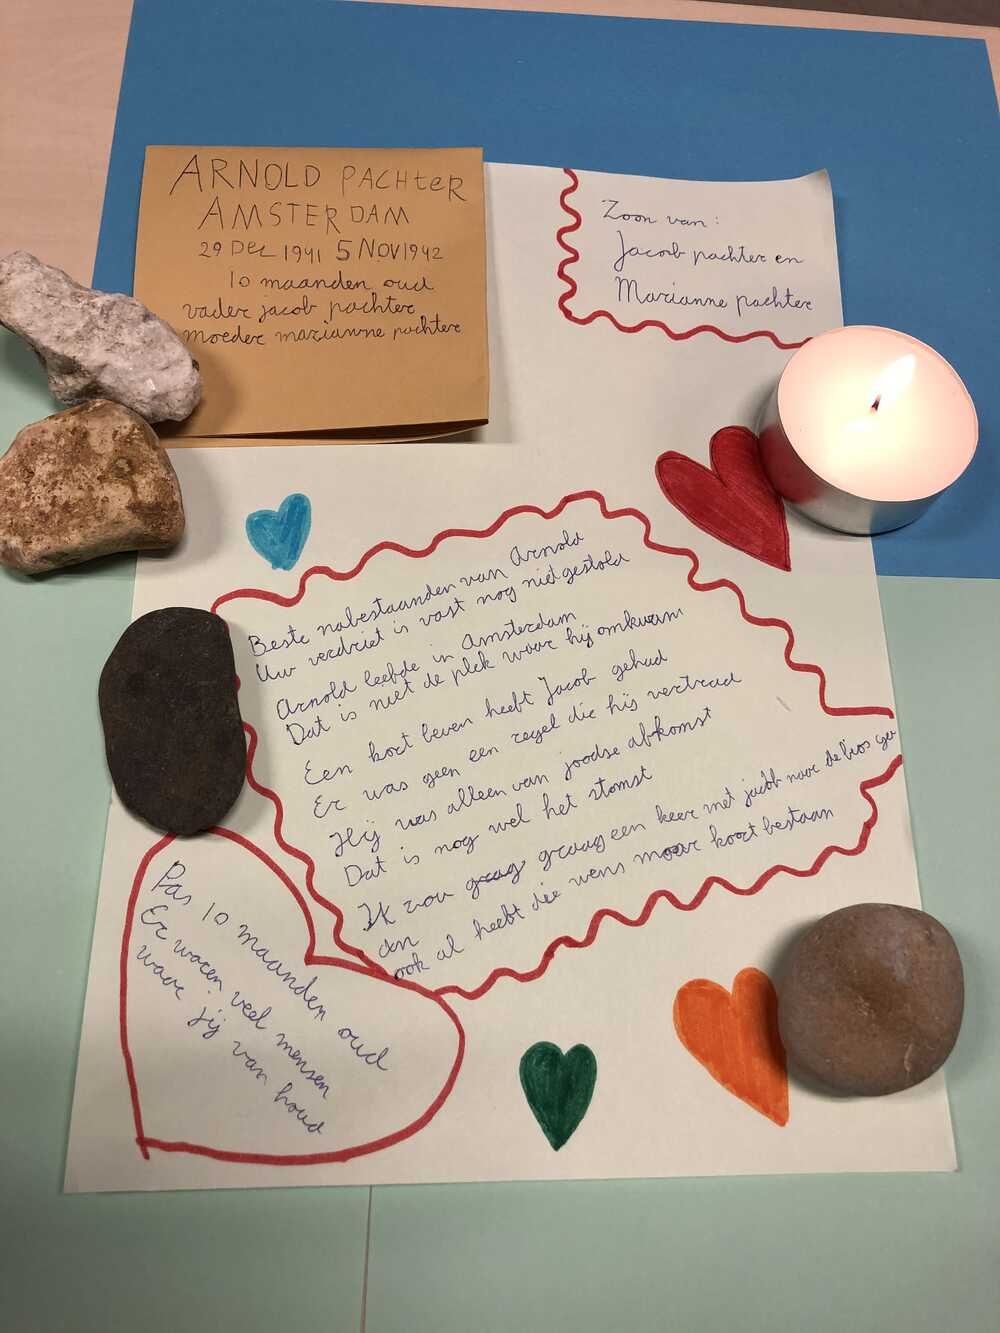 ARNOLD PACHteR
AMSTERDAM
29 Dec 1941 5 NOV 1942
10 maanden oud
vader jacob pachter
moeder marianne pachter
Zoon van:
Jacob pachter en
Marianne pachter
Beste nabestaanden van Arnold
Uw verdriet is vast nog niet gestold
Arnold leefde in Amsterdam
Dat is niet de plek waar hij omkwam
Een kort leven heeft Jacob gehad
Er was geen een regel die hij vertrad
Hij was alleen van joodse afkomst
Dat is nog wel het stomst
Ik zou graag graag een keer met jacob naar de bios
ook al heeft die wens maar kort bestaan
Pas 10 maanden oud
Er waren veel mensen
waar jij van houd